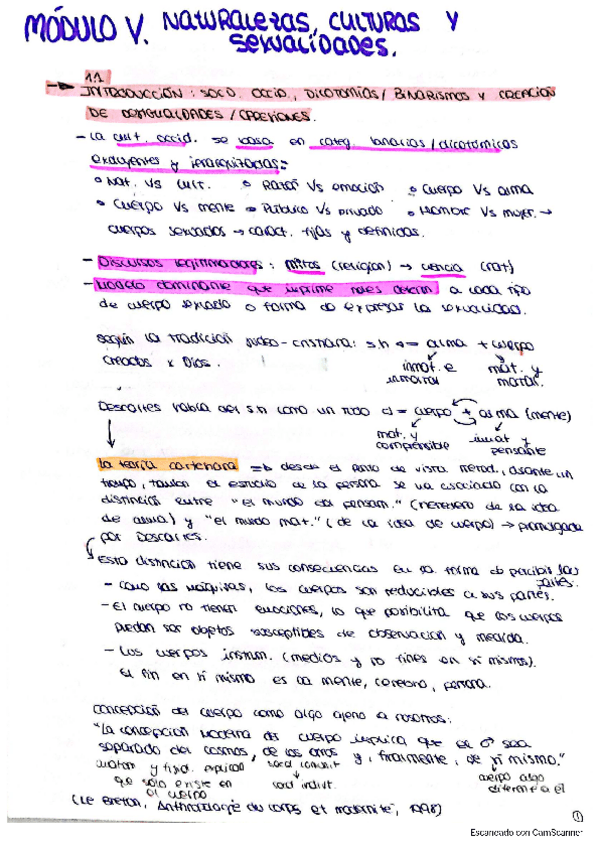 MÓDULO V. NATURALEZAS, CULTURAS Y
SEXUALIDADES.
1.1
INTRODUCCIÓN: SOCO. OCCID., DICOTOMÍAS / BINARISMOS Y CREACIÓN
DE DESIGUALDADES / OPRESIONES.
- La cult. occid. se basa en categ. binarias / dicotómicas
excluyentes y jerarquizadas:
• Nat. Vs Cult. • Razón Vs emoción • Cuerpo Vs alma
• Cuerpo Vs mente • Público Vs privado • Hombre Vs mujer →
cuerpos sexuados → caract. fijas y definidas.
- Discursos legitimadores: mitos (religión) → ciencia (rat)
- Modelo dominante que imprime roles determ. a cada tipo
de cuerpo sexuado o forma de expresar la sexualidad.
Según la tradición judeo-cristiana: s.h = alma + cuerpo
creados x Dios.
inmat. e mat. y
inmortal mortal.
Descartes habla del s.h como un todo = cuerpo + alma (mente)
mat. y inmat y
comprensible pensante
La teoría cartesiana => desde el punto de vista metod., durante un
tiempo, también el estudio de la persona se va asociado con la
distinción entre "el mundo del pensam." (heredero de la idea
de alma) y "el mundo mat." (de la idea de cuerpo) → promulgada
por Descartes.
Esta distinción tiene sus consecuencias en su forma de percibir las
partes:
- Como las máquinas, los cuerpos son reducibles a sus partes.
- El cuerpo no tienen emociones, lo que posibilita que los cuerpos
puedan ser objetos susceptibles de observación y medida.
- Los cuerpos instrum. (medios y no fines en sí mismos).
El fin en sí mismo es la mente, cerebro, persona.
Concepción del cuerpo como algo ajeno a nosotros:
"La concepción moderna del cuerpo implica que el ♂ sea
separado del cosmos, de los otros y, finalmente, de sí mismo."
y explicado socd comunit cuerpo algo
que solo existe en → socd indivt. diferente a él
el cuerpo
(Le Breton, Anthropologie du corps et modernité, 1998)
1
Escaneado con CamScanner